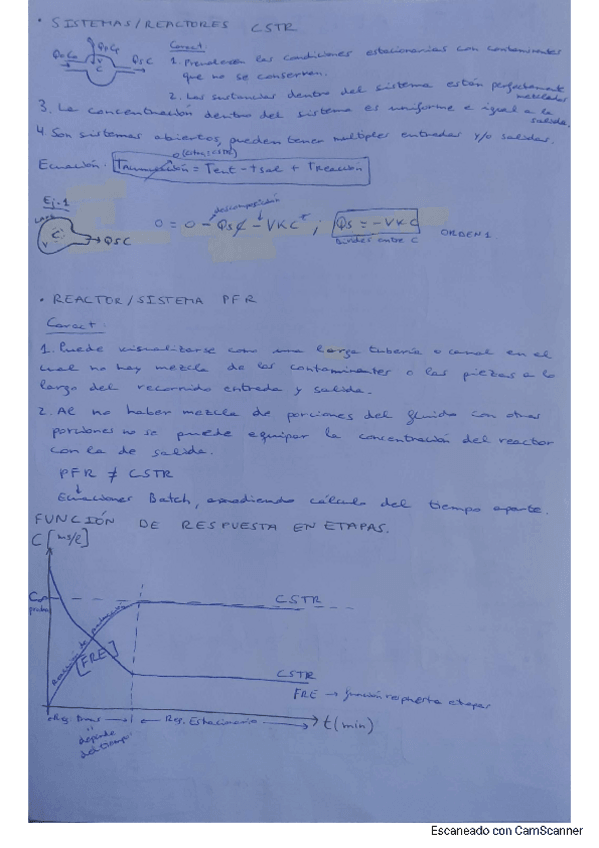 • SISTEMAS/REACTORES CSTR
Caract.
1. Prevalecen las condiciones estacionarias con contaminantes
que no se conserven.
2. Las sustancias dentro del sistema están perfectamente
mezcladas
3. La concentración dentro del sistema es uniforme e igual a la
salida.
4 Son sistemas abiertos, pueden tener multiples entradas y/o salidas.
Ecuación.
Ej. 1
V C → QsC
descomposición
Qs = -VKC
ORDEN 1
Dividir entre C
• REACTOR/SISTEMA PFR
Caract.
1. Puede visualizarse como una larga tubería o canal en el
cual no hay mezcla de los contaminantes o las piezas a lo
largo del recorrido entrada y salida.
2. Al no haber mezcla de porciones del fluido con otras
porciones no se puede equipar la concentración del reactor
con la de salida.
PFR ≠ CSTR
↓
Ecuaciones Batch, anadiendo cálculo del tiempo aparte.
FUNCIÓN DE RESPUESTA EN ETAPAS.
C [mg/l]
CSTR
[FRE]
CSTR
FRE → función respuesta etapas
Reg. Estacionario → t (min)
depende
del tiempo.
Escaneado con CamScanner